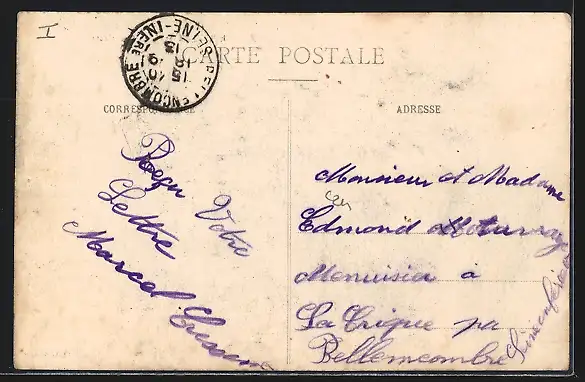 I
CARTE POSTALE
BELLENCOMBRE
SEINE-INFRE
CORRESPONDANCE
ADRESSE
Reçu Votre
Lettre
Marcel
Monsieur et Madame
Edmond
Menuisier à
La Crique par
Bellemcombre